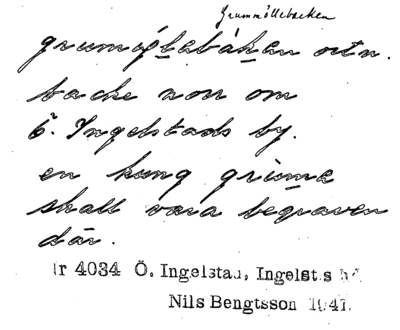 Grummöllebacken
grumǫ́lebàken ortn.
backe norr om
Ö. Ingelstads by.
en kung grumme
skall vara begraven
där.
Ir 4034 Ö. Ingelstad, Ingelst.s hd
Nils Bengtsson 1941.